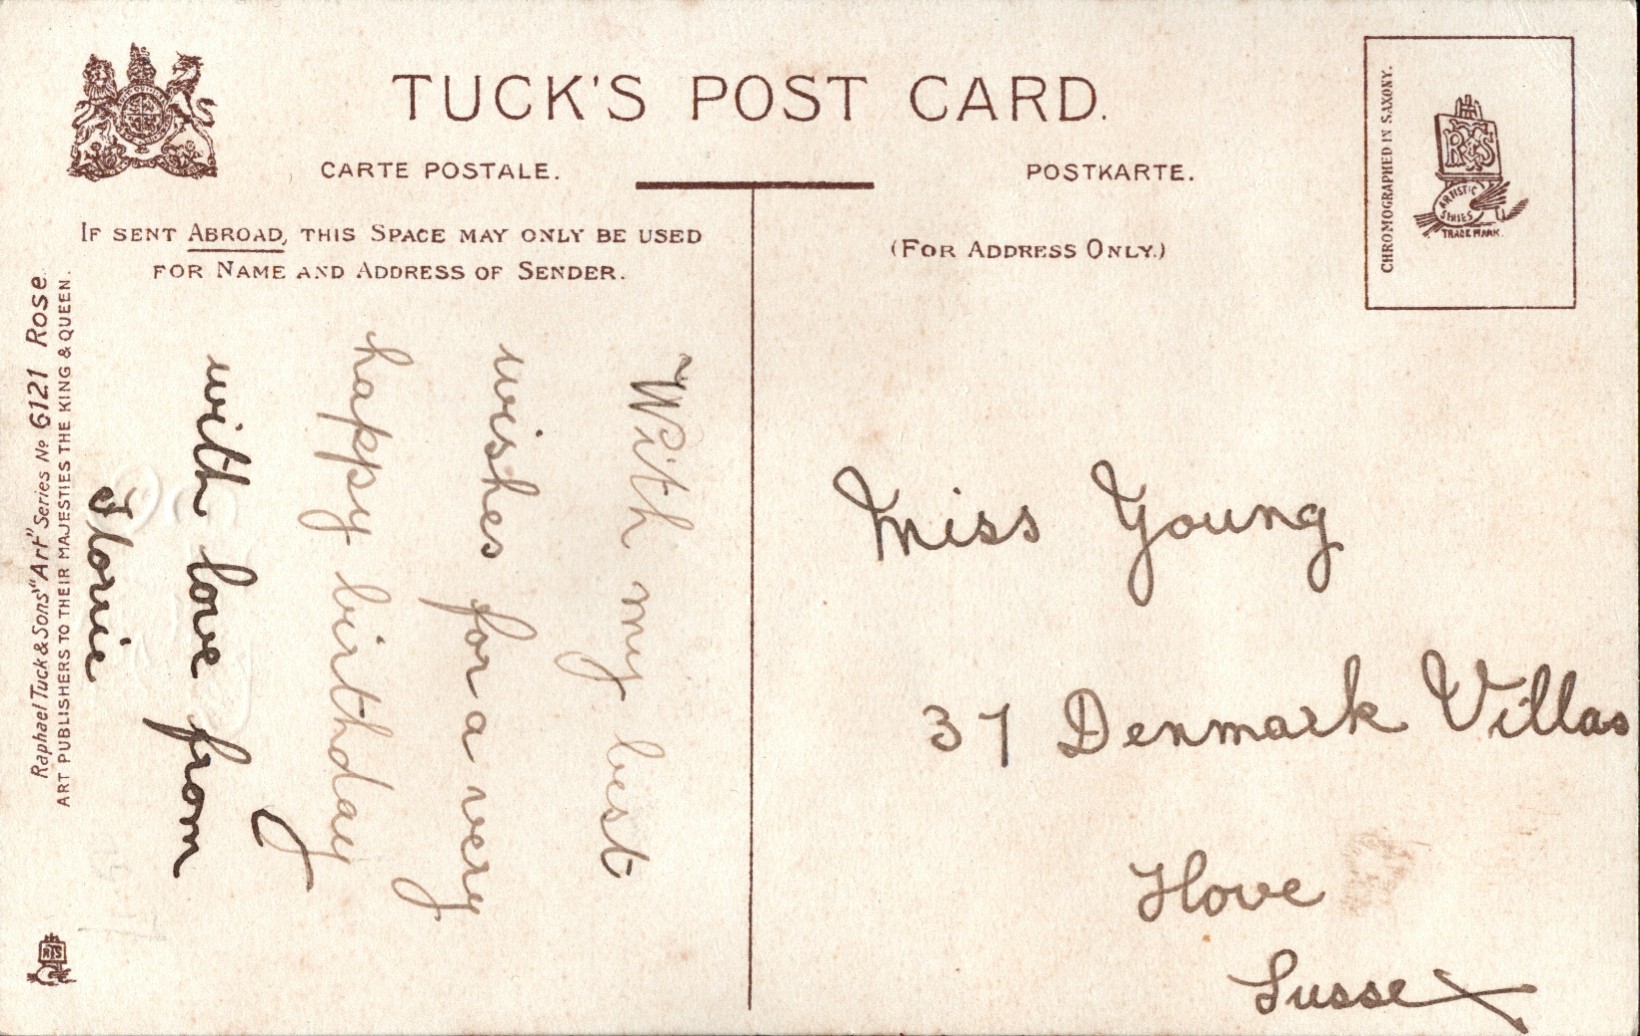 TUCK'S POST CARD.
CARTE POSTALE.
POSTKARTE.
IF SENT ABROAD, THIS SPACE MAY ONLY BE USED
FOR NAME AND ADDRESS OF SENDER.
(FOR ADDRESS ONLY.)
CHROMOGRAPHED IN SAXONY.
R T & S
ARTISTIC
SERIES
TRADE MARK.
Raphael Tuck & Sons' "Art" Series No 6121 Rose.
ART PUBLISHERS TO THEIR MAJESTIES THE KING & QUEEN.
With my best
wishes for a very
happy birthday
with love from
Florie
Miss Young
37 Denmark Villas
Hove
Sussex